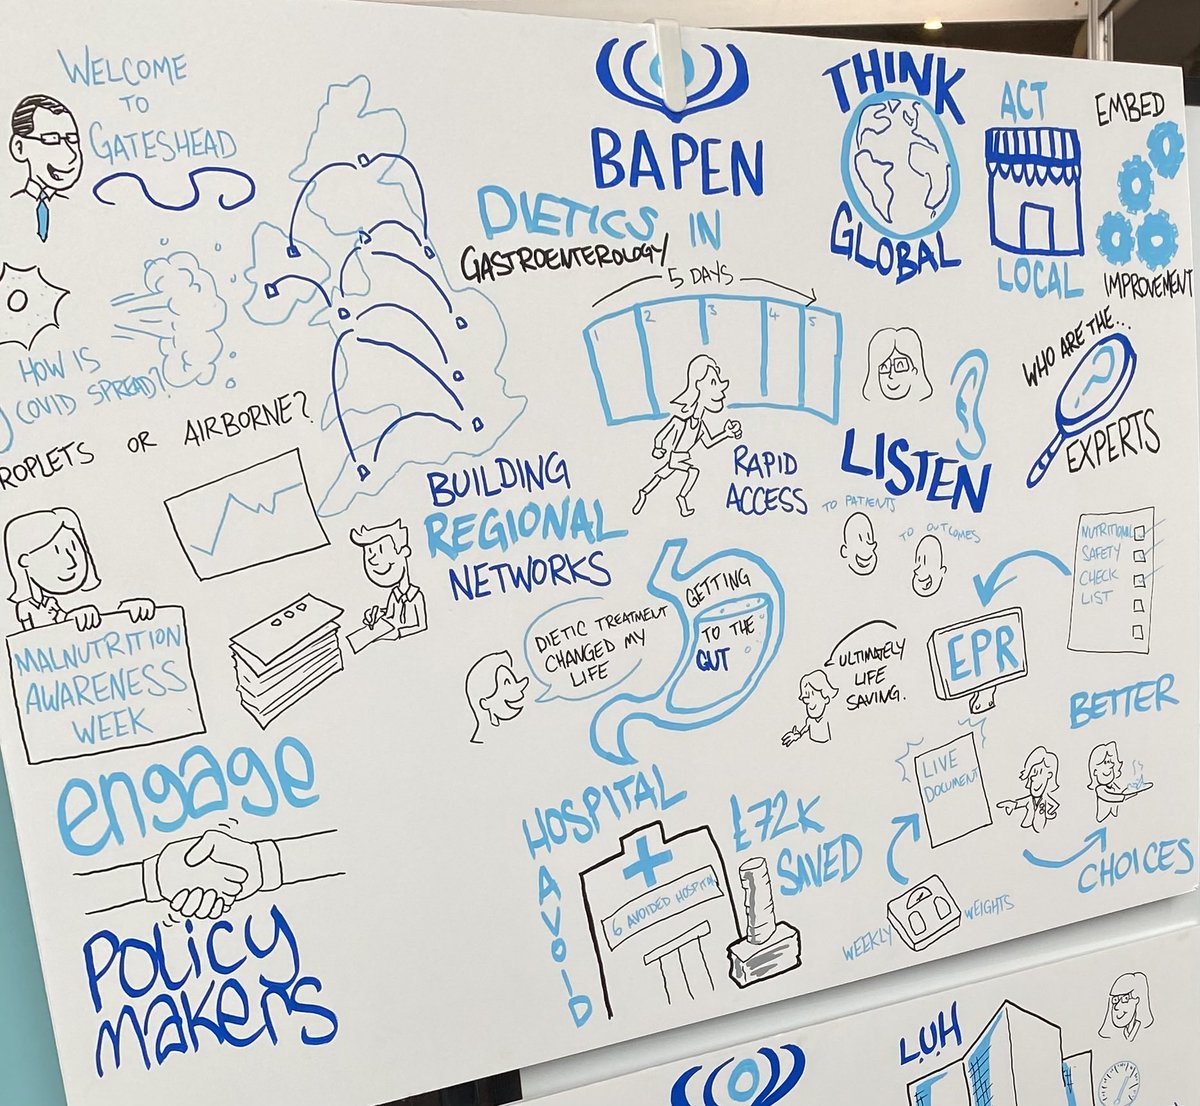 WELCOME
TO
GATESHEAD
HOW IS
COVID SPREAD?
ROPLETS OR AIRBORNE?
MALNUTRITION
AWARENESS
WEEK
engage
Policy
makers
BUILDING
REGIONAL
NETWORKS
BAPEN
DIETICS IN
GASTROENTEROLOGY
5 DAYS
1 2 3 4 5
RAPID
ACCESS
DIETIC TREATMENT
CHANGED MY
LIFE
GETTING
TO THE
GUT
HOSPITAL
AVOID
6 AVOIDED HOSPITAL
£72K
SAVED
THINK
GLOBAL
ACT
LOCAL
EMBED
IMPROVEMENT
LISTEN
TO PATIENTS
TO OUTCOMES
WHO ARE THE...
?
EXPERTS
NUTRITIONAL
SAFETY
CHECK
LIST
EPR
ULTIMATELY
LIFE
SAVING.
LIVE
DOCUMENT
WEEKLY
WEIGHTS
BETTER
CHOICES
LUH